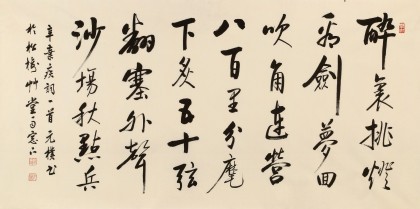 醉裏挑燈
看劍夢回
吹角連營
八百里分麾
下炙五十弦
翻塞外聲
沙場秋點兵
辛棄疾詞一首 元樸書
於松 艸堂 窗下